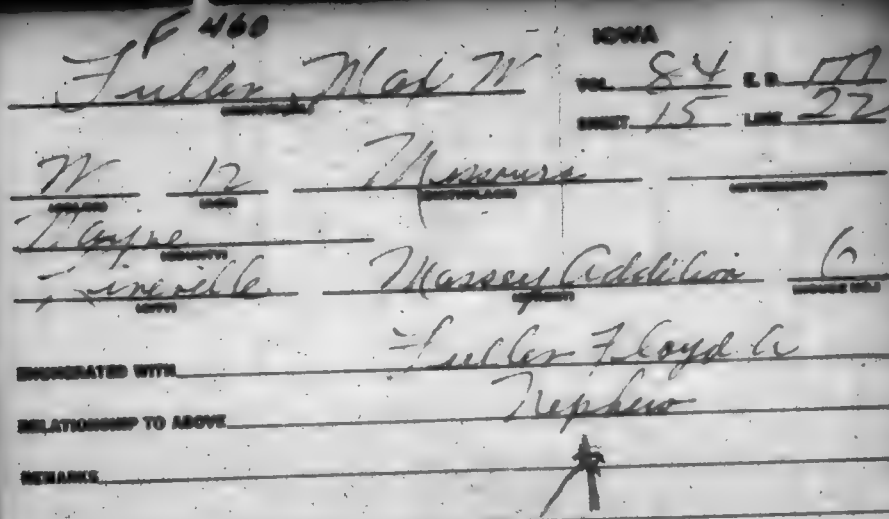 F 460
IOWA
Fuller, Max W
VOL. 84 E. D. 177
SHEET 15 LINE 22
W 12 Missouri
(COLOR) (AGE) (BIRTHPLACE) (CITIZENSHIP)
Wayne
(COUNTY)
Lineville Massey Addition 6
(CITY) (STREET) (HOUSE NO.)
ENUMERATED WITH Fuller Floyd A
RELATIONSHIP TO ABOVE Nephew
REMARKS